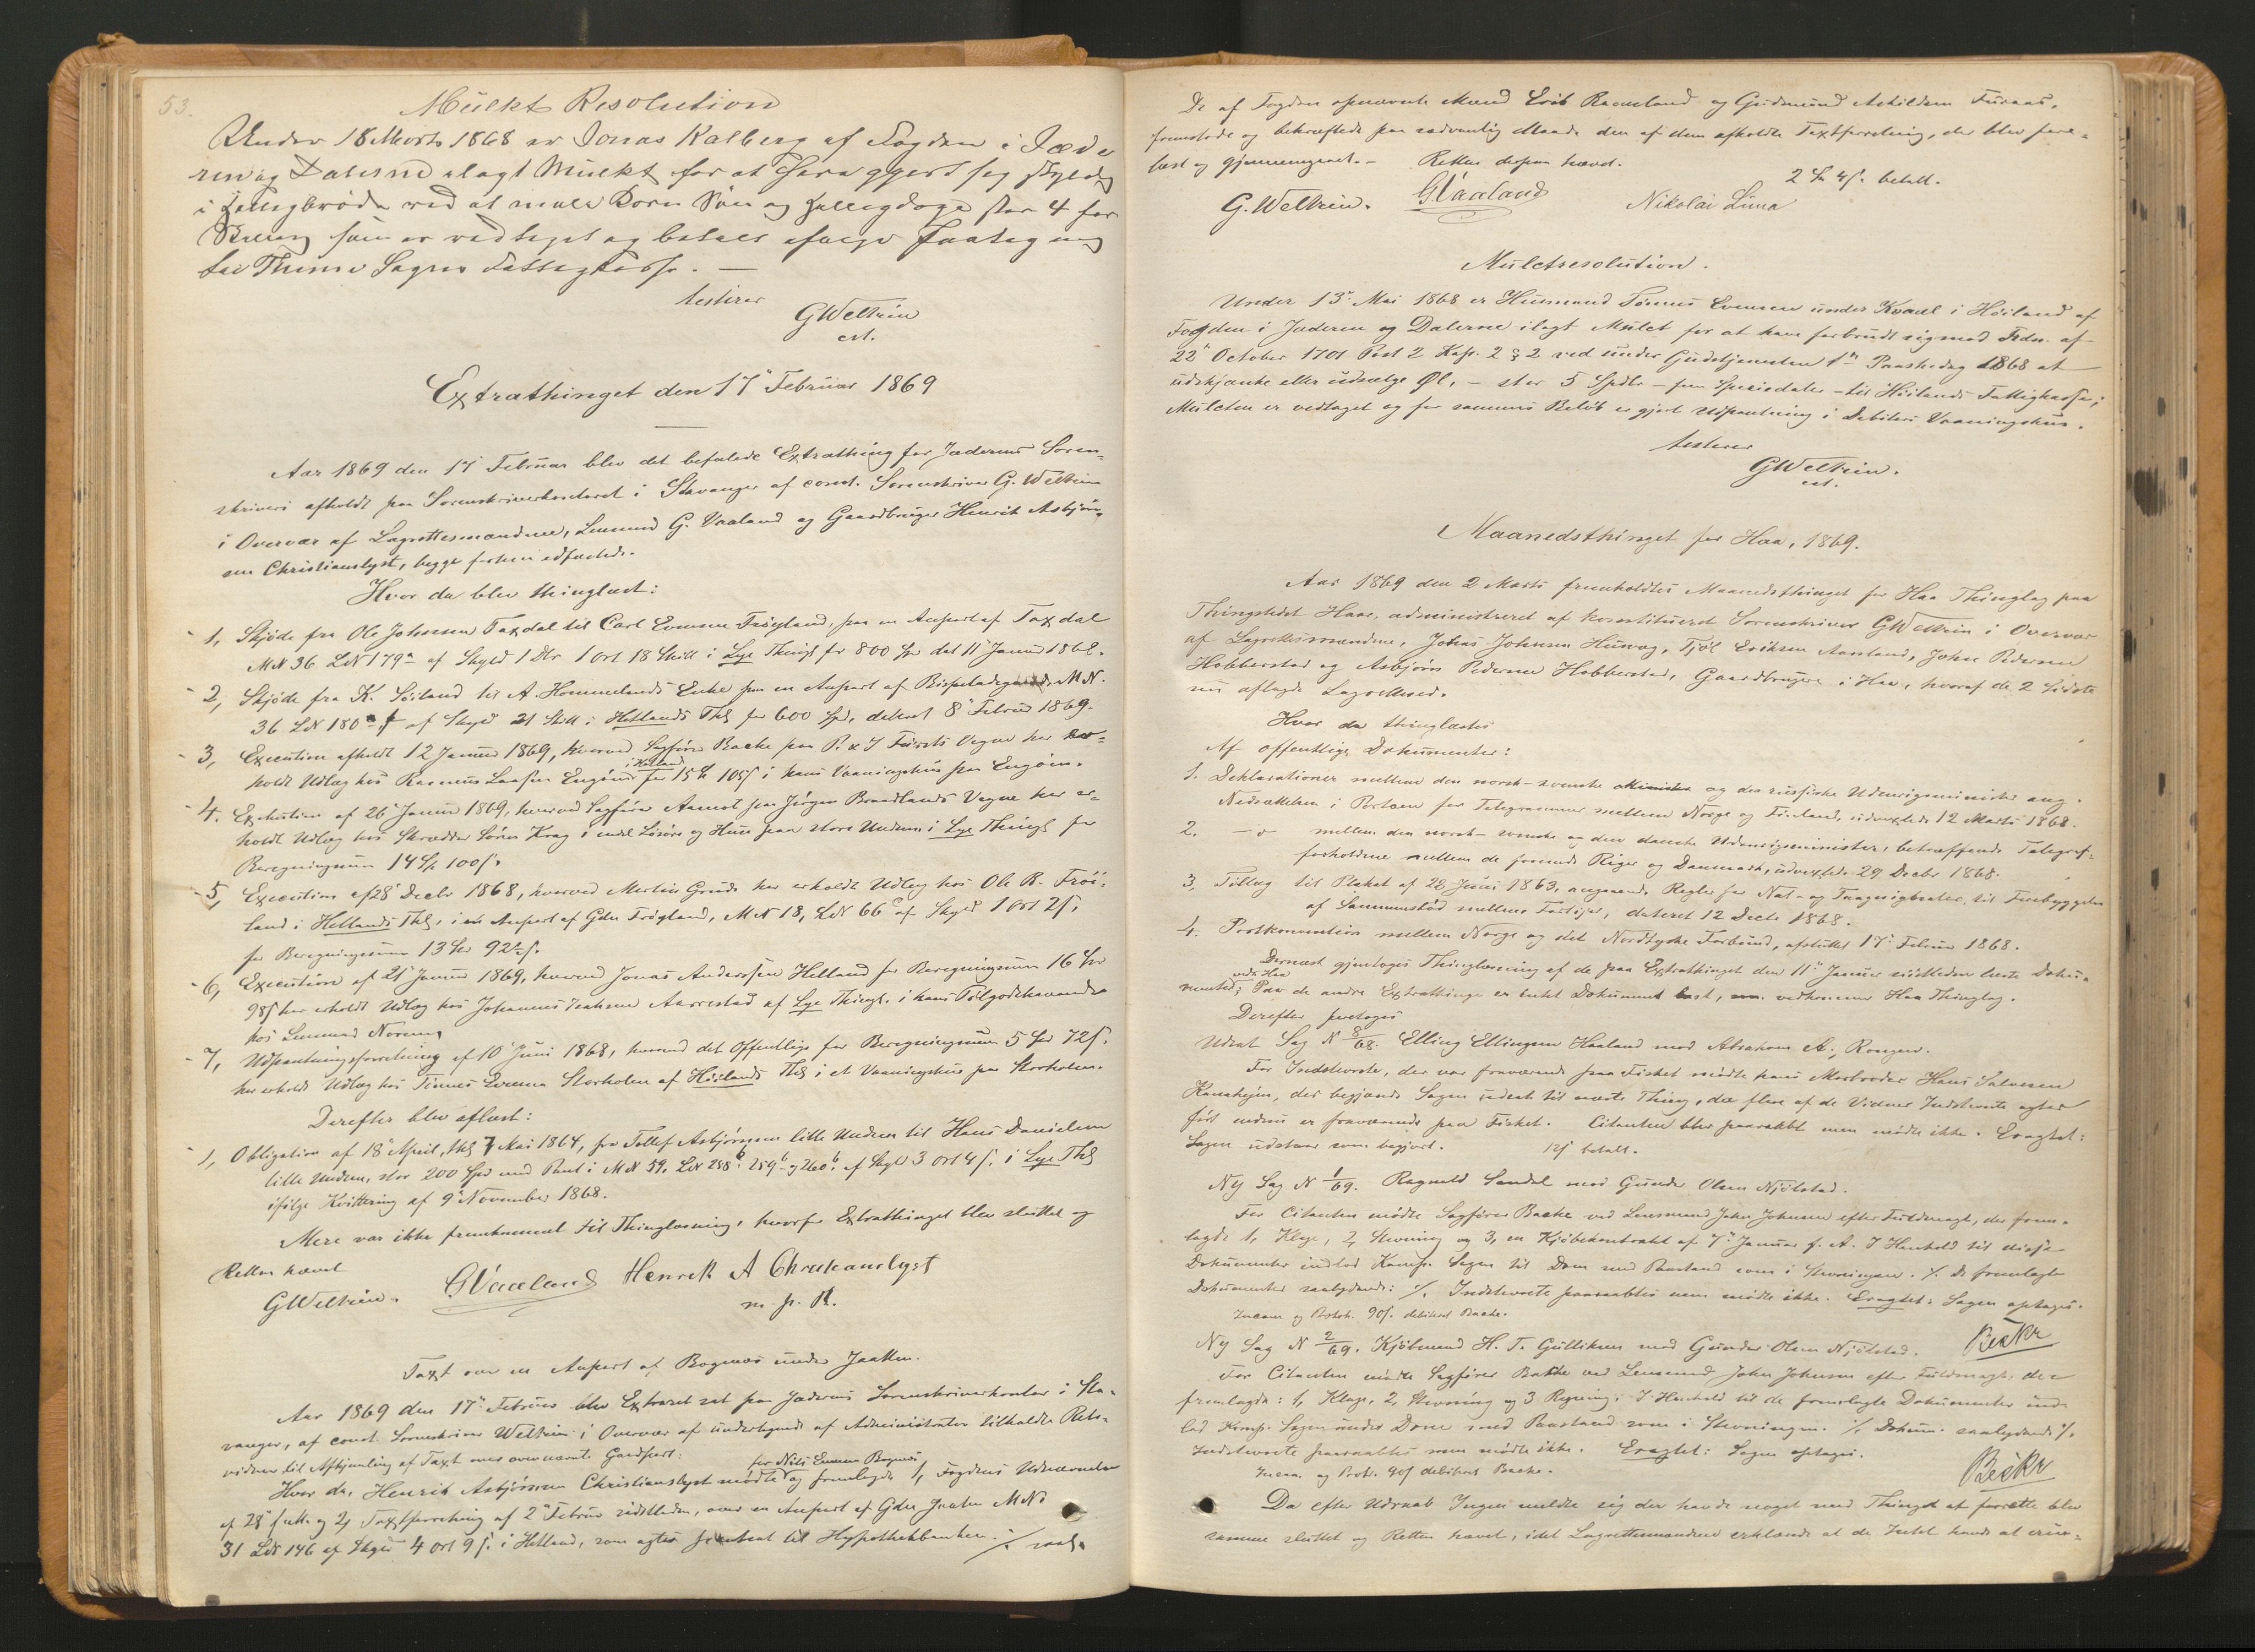 53.
Mulkt Resolution
Under 18 Marts 1868 er Jonas Kalberg af Fogden i Jæde
ren og Dalerne ilagt Mulkt for at have gjort sig skyldig
i Helligbrøde ved at male Korn Søn og Helligdage stor 4 for
som er vedtaget og betalt ifølge
til Thime Sogns Fattigkasse. —
testerer
GWeltzin
cst.
Extrathinget den 17de Februar 1869
Aar 1869 den 17 Februar blev det befalede Extrathing for Jæderens Soren-
skriveri afholdt paa Sorenskriverkontoret i Stavanger af const. Sorenskriver G. Weltzin
i Overvær af Lagrettesmændene, Lensmand G. Vaaland og Gaardbruger Henrik Asbjørn-
sen Christianslyst, begge forhen edfæstede.
Hvor da blev thinglæst:
1, Skjøde fra Ole Johnsen Taxdal til Carl Evensen Frøyland, paa en Anpart af Taxdal
MN 36 LN 179a af Skyld 1 Dlr 1 Ort 18 Skill i Lye Thingl for 800 Spd dat 11 Januar 1868.
2, Skjøde fra K. Soiland til A. Hommelands Enke paa en Anpart af Bispeladegaard, MN.
36 LN 180 af Skyld 21 Skill i Hetlands Thl for 600 Spd, dateret 8 Februar 1869.
3, Execution afholdt 12 Januar 1869, hvorved Sagfører Backe paa P. & J Færsts Vegne har er-
holdt Udlæg hos Rasmus Laasen Engøen i Hetland for 15 Sp 105 s i hans Vaaningshus paa Engøen.
4. Exekution af 26 Januar 1869, hvorved Sagfører Aamot paa Jørgen Braadlands Vegne har er-
holdt Udlæg hos Skrædder Søren Krag i endel Løsøre og Huus paa store Undem i Lye Thingl for
Beregningssum 14 Sp 100 s.
5, Execution af 28 Decbr 1868, hvorved Martin Grude har erholdt Udlæg hos Ole B. Frøi-
land i Hetlands Thl, i en Anpart af Gden Frøyland, MN 18, LN 66c af Skyld 1 Ort 2 s,
for Beregningssum 13 Spd 92½ s.
6, Execution af 21 Januar 1869, hvorved Jonas Anderssen Helland for Beregningssum 16 Spd
98 s har erholdt Udlæg hos Johannes Isaksen Aarrestad af Lye Thingl. i hans Tilgodehavende
hos Lensmand Norem
7, Udpantningsforretning af 10 Juni 1868, hvorved det Offentlige for Beregningssum 5 Spd 72 s.
har erholdt Udlæg hos Tønnes Evensen Storholen af Høilands Thl i et Vaaningshus paa Storholen.
Derefter blev aflæst:
1, Obligation af 18 April, thl 7 Mai 1864, fra Tollef Asbjørnsen lille Undem til Hans Danielsen
lille Undem, stor 200 Spd med Pant i MN 59. LN 258b. 259b og 260b. af Skyld 3 Ort 4 s. i Lye Thl
ifølge Kvittering af 9 November 1868.
Mere var ikke fremkommet til Thinglæsning, hvorfor Extrathinget blev sluttet og
Retten hævet
GWeltzin. GVaaland Henrik A Christianslyst
m. p. P.
Taxt over en Anpart af Bognæs under Jaatten.
Aar 1869 den 17 Februar blev Extraret sat paa Jæderens Sorenskriverkontor i Sta-
vanger, af const. Sorenskriver Weltzin i Overvær af undertegnede af Administrator tilkaldte Rets-
vidner til Afhjemling af Taxt over ovennævnte Gaardpart:
Hvor da, Henrik Asbjørnsen Christianslyst mødte for Nils Bognæs og fremlagde 1, Fogdens Udnævnelse
af 28 f. M. og 2, Taxtforretning af 2 Februar sidstleden, over en Anpart af Gden Jaatten MN
31 LN 146 af Skyld 4 Ort 9 s. i Hetland, som agtes pantsat til Hypothekbanken. ./. saal.
De af Fogden opnævnte Mænd Erik Raaneland og Gudmund Askildsen Furaas,
fremstode og bekræftede paa sædvanlig Maade den af dem afholdte Taxtforretning, der blev fore-
læst og gjennemgaaet. — Retten derpaa hævet.
2 Sp 4 s. betalt.
G. Weltzin. GVaaland Nikolai Lima
Mulctresolution.
Under 13 Mai 1868 er Husmand Tønnes Evensen under Kvaal i Høiland af
Fogden i Jæderen og Dalerne ilagt Mulct for at have forbrudt sig mod Frdn. af
22 October 1701 Post 2 Kap. 2 § 2 ved under Gudstjenesten 1n Paaskedag 1868 at
udskjænke eller udsælge Øl, — stor 5 Spdlr — fem Speciedaler — til Høilands Fattigkasse;
Mulcten er vedtaget og for sammes Beløb er gjort Udpantning i Debitors Vaaningshus.
testerer
GWeltzin.
cst.
Maanedsthinget for Haa, 1869.
Aar 1869 den 2 Marts fremholdtes Maanedsthinget for Haa Thinglag paa
Thingstedet Haar, administreret af konstitueret Sorenskriver GWeltzin i Overvær
af Lagrettesmændene, Johans Johnsen Husvog, Tjøl Eriksen Aarsland, John Pedersen
Hobberstad og Asbjørn Pedersen Hobberstad, Gaardbrugere i Haa, hvoraf de 2 Sidste
nu aflagde Lagrettesed.
Hvor da thinglæstes
Af offentlige Dokumenter:
1. Deklarationer mellem den norsk-svenske Minister og den russiske Udenrigsminister ang.
Nedsættelsen i Portoen for Telegrammer mellem Norge og Finland, udvexlede 12 Marts 1868.
2. — " — mellem den norsk-svenske og den danske Udenrigsminister, betræffende Telegraf-
forholdene mellem de forenede Riger og Danmark, udvexlede 29 Decbr 1868.
3, Tillæg til Plakat af 28 Juni 1863, angaaende Regler for Nat- og Taagesignaler, til Forebyggelse
af Sammenstød mellem Fartøjer, dateret 12 Decbr 1868.
4. Postkonvention mellem Norge og det Nordtydske Forbund, afsluttet 17 Februar 1868.
Dernæst gjentoges Thinglæsning af de paa Extrathinget den 11 Januar sidstleden læste Doku-
menter vedk Haa; Paa de andre Extrathinge er intet Dokument læst, vedkommer Haa Thinglag.
Derefter foretoges
Udsat Sag N 8/68. Elling Ellingsen Haaland mod Abraham A. Rongen.
For Indstevnte, der var fraværende paa Fisket mødte hans Morbroder Hans Salvesen
Kanahejen, der begjærede Sagen udsat til næste Thing, da flere af de Vidner Indstevnte agter
ført endnu er fraværende paa Fisket. Citanten blev paaraabt men mødte ikke. Eragtet:
Sagen udstaar som begjært. 12 s betalt.
Ny Sag N 1/69. Ragnald Sandal mod Gunder Olsen Njølstad.
For Citanten mødte Sagfører Backe ved Lensmand John Johnsen efter Fuldmagt, der frem-
lagde 1, Klage, 2, Stevning og 3, en Kjøbekontrakt af 7 Januar f. A. I Henhold til disse
Dokumenter indlod Komp. Sagen til Dom med Paastand som i Stevningen. ./. De fremlagte
Dokumenter saalydende: ./. Indstevnte paaraabtes men mødte ikke. Eragtet: Sagen optages.
Incam. og Protok. 90 s. debiteret Backe.
Ny Sag N 2/69. Kjøbmand H. T. Gulliksen mod Gunder Olsen Njølstad. Becker
For Citanten mødte Sagfører Backe ved Lensmand John Johnsen efter Fuldmagt, der
fremlagde: 1, Klage, 2, Stevning og 3 Regning. I Henhold til de fremlagte Dokumenter ind-
lod Komp. Sagen under Dom med Paastand som i Stevningen. ./. Dokum. saalydende ./.
Indstevnte paaraabtes men mødte ikke. Eragtet: Sagen optages.
Incam. og Prot. 90 s debiteret Backe. Becker
Da efter Udraab Ingen meldte sig der havde noget ved Thinget at forrette blev
samme sluttet og Retten hævet, idet Lagrettesmændene erklærede at de Intet havde at erin-